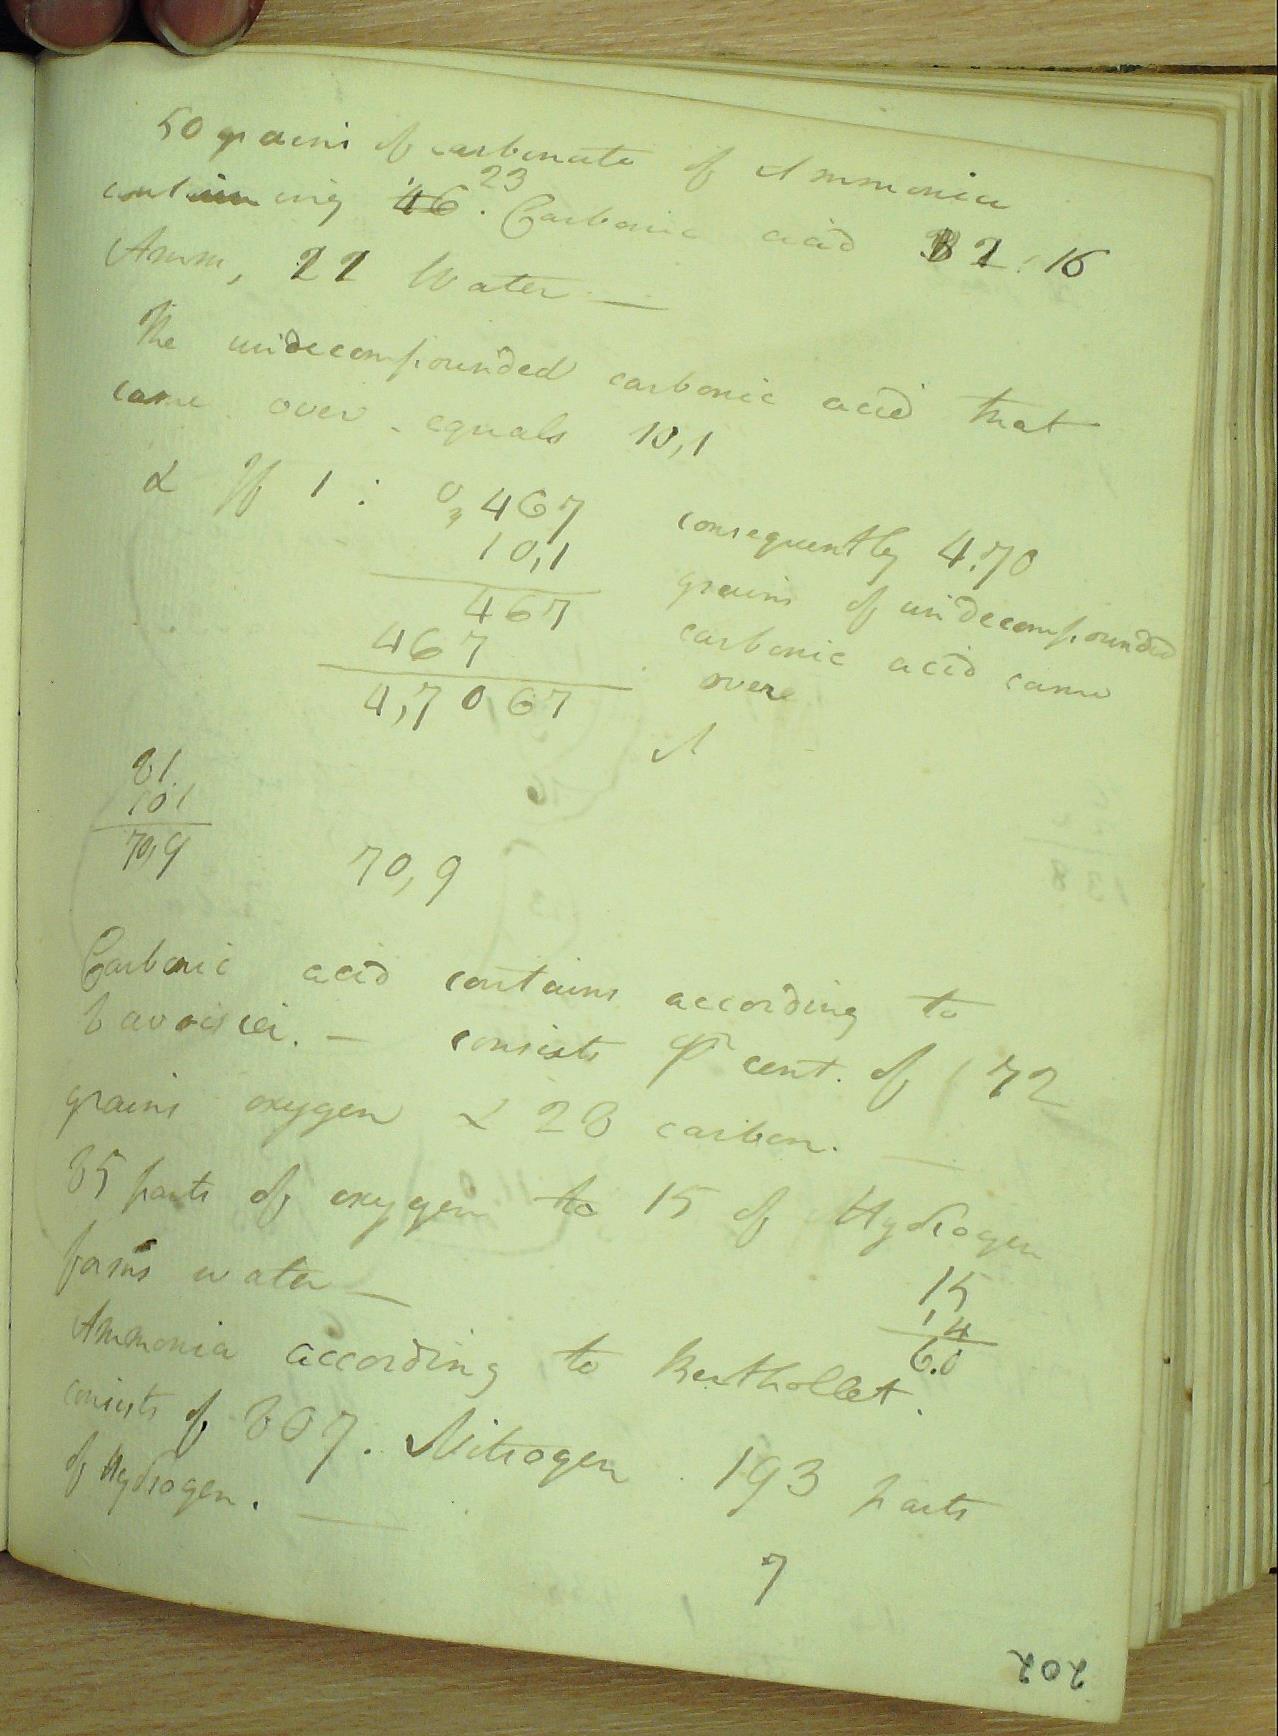 50 grains of carbonate of Ammonia
containing 46. 23 Carbonic acid 32. 16
Amm, 22 Water —
The undecompounded carbonic acid that
came over equals 10,1
& If 1 : 0,467 consequently 4.70
10,1 grains of undecompounded
467 carbonic acid came
467 overe
4,7067
81
10.1
70,9
70,9
Carbonic acid contains according to
Lavoisier. — consists pr cent. of 72
grains oxygen & 28 carbon. —
85 parts of oxygen to 15 of Hydrogen
forms water —
15
,4
6.0
Ammonia according to Berthollet.
consists of 807. Nitrogen 193 parts
of Hydrogen. —
7
202